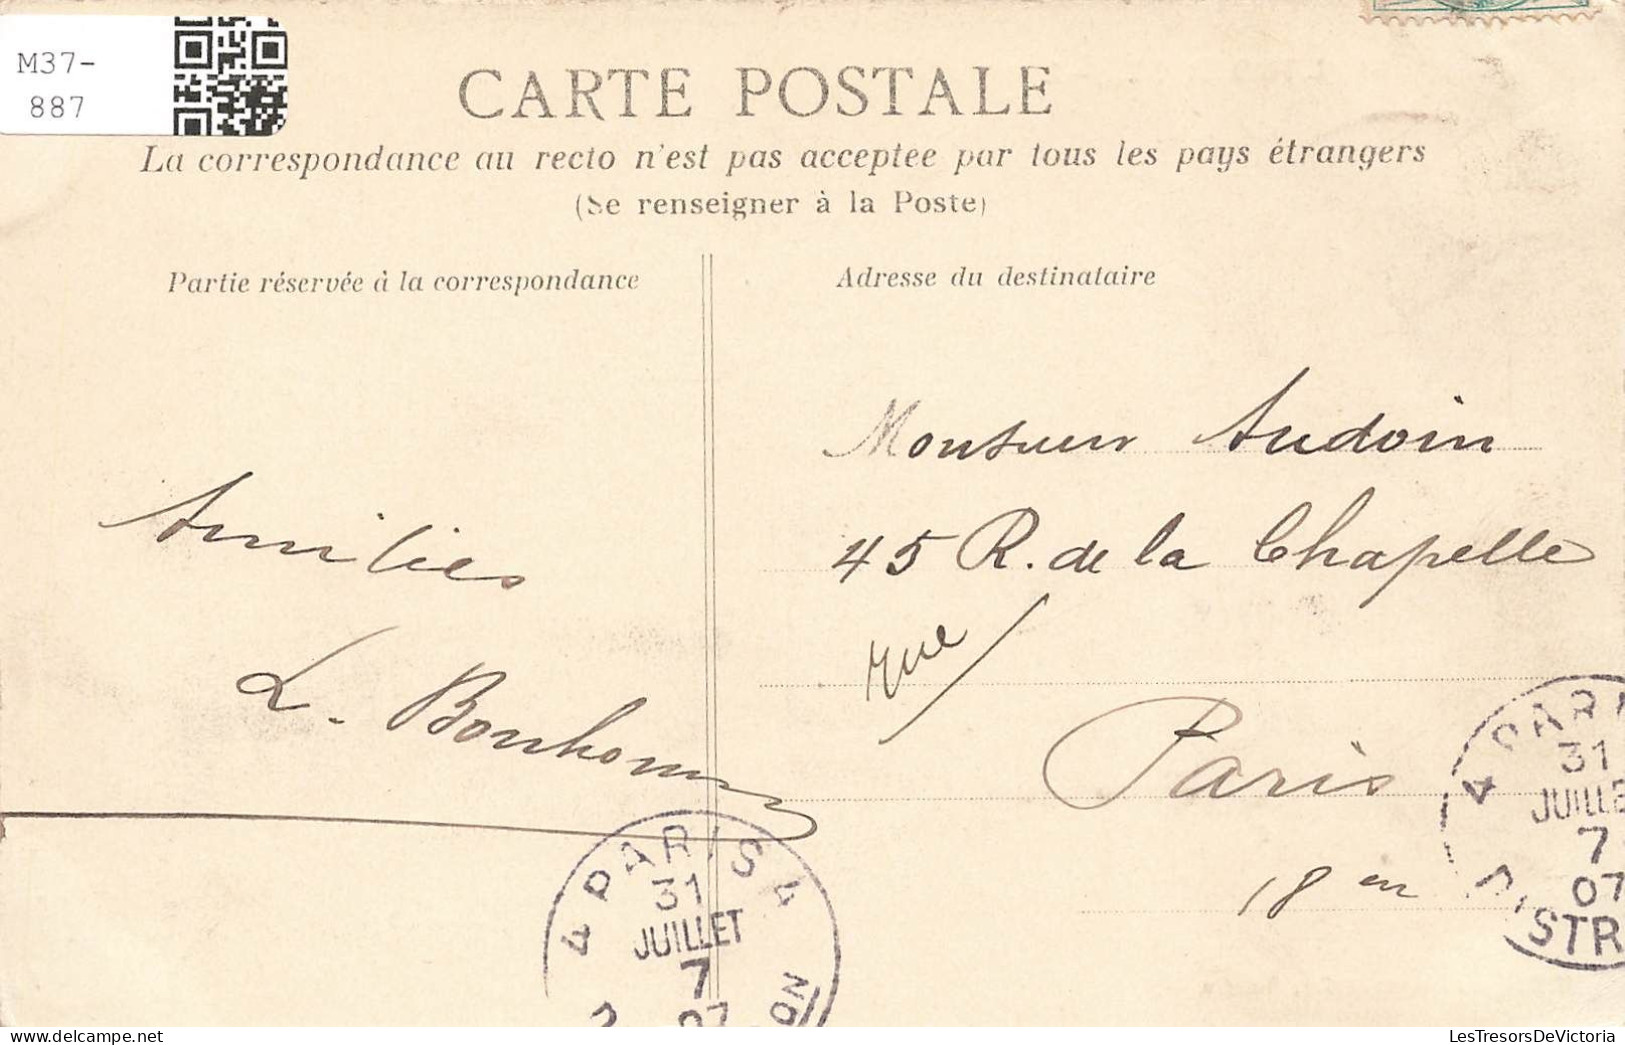 M37-
887
CARTE POSTALE
La correspondance au recto n'est pas acceptée par tous les pays étrangers
(Se renseigner à la Poste)
Partie réservée à la correspondance
Adresse du destinataire
Amitiés
L. Bonhomme
Monsieur Audoin
45 R. de la Chapelle
rue
Paris
18 em
4 PARIS 4
31
JUILLET
7
07
4 PARI
31
JUILLE
7
07
DISTR
LesTresorsDeVictoria